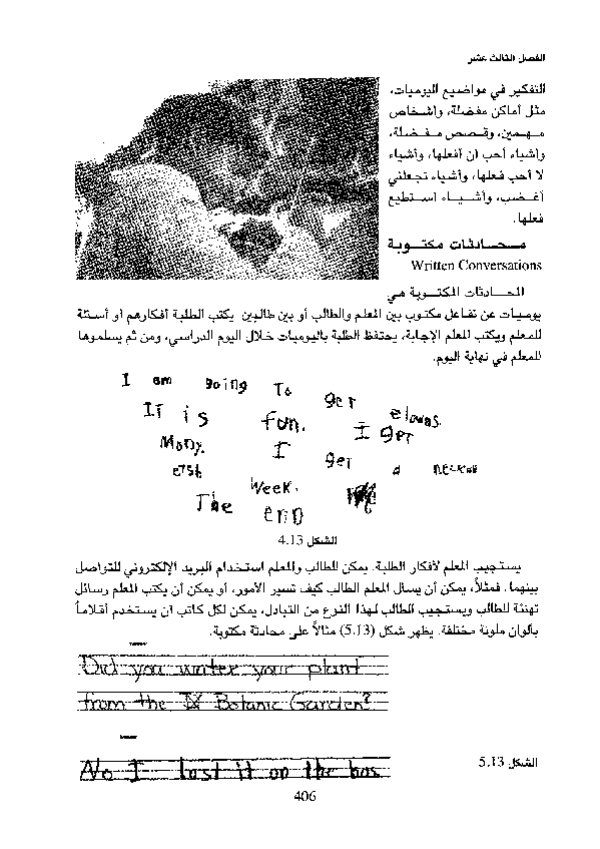 الفصل الثالث عشر
التفكير في مواضيع اليوميات،
مثل أماكن مفضلة، وأشخاص
مهمين، وقصص مفضلة،
وأشياء أحب أن أفعلها، وأشياء
لا أحب فعلها، وأشياء تجعلني
أغضب، وأشياء استطيع
فعلها.
محادثات مكتوبة
Written Conversations
المحادثات المكتوبة هي
يوميات عن تفاعل مكتوب بين المعلم والطالب أو بين طالبين يكتب الطلبة أفكارهم أو أسئلة
للمعلم ويكتب المعلم الإجابة، يحتفظ الطلبة باليوميات خلال اليوم الدراسي، ومن ثم يسلموها
للمعلم في نهاية اليوم.
I am going To get
IT is fun. I get
Mony. I get a
The week. end
الشكل 4.13
يستجيب المعلم لأفكار الطلبة. يمكن للطالب والمعلم استخدام البريد الإلكتروني للتواصل
بينهما. فمثلاً، يمكن أن يسأل المعلم الطالب كيف تسير الأمور، أو يمكن أن يكتب المعلم رسائل
تهنئة للطالب ويستجيب الطالب لهذا النوع من التبادل، يمكن لكل كاتب أن يستخدم أقلاماً
بألوان ملونة مختلفة. يظهر شكل (5.13) مثالاً على محادثة مكتوبة.
Did you water your plant
from the Botanic Garden?
No I lost it on the bas
الشكل 5.13
406